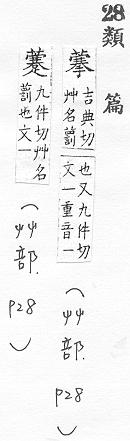 28 類篇
吉典切艸名藅
也又九件切文一重音一
(艸部. P28)
藆
九件切艸名
藅也文一
(艸部. P28)